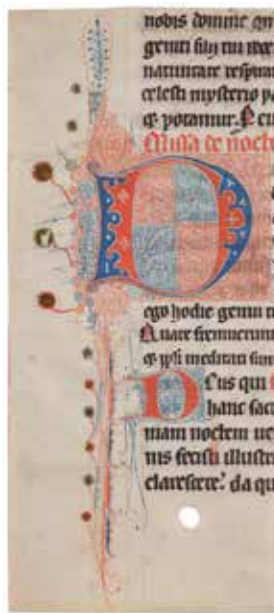 nobis domine
geniti filii tui
celesti mysterio
potamur. P eu
Missa de nocte
D
ego hodie genui t
Quare fremuerunt
ppli meditati sunt
Deus qui
hanc sac
mam noctem ue
nis fecisti illustr
clarescere: da qu